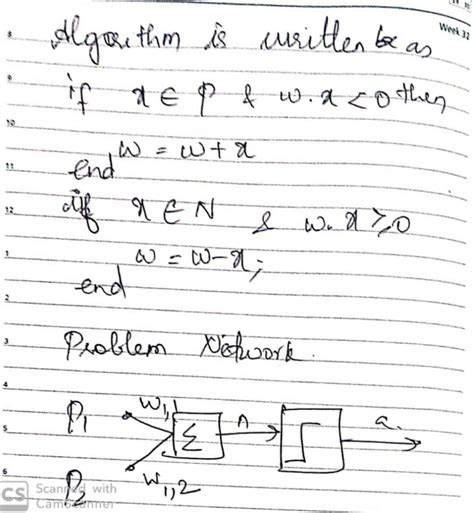 Week 32
8
Algorithm is written be as
9
if x ∈ P & w.x < 0 then
10
w = w + x
11
end
12
if x ∈ N & w.x ≥ 0
1
w = w - x;
end
2
3
Problem Network.
4
P1 W1,1 Σ n a.
5
6
P2 W1,2
CS Scanned with
CamScanner